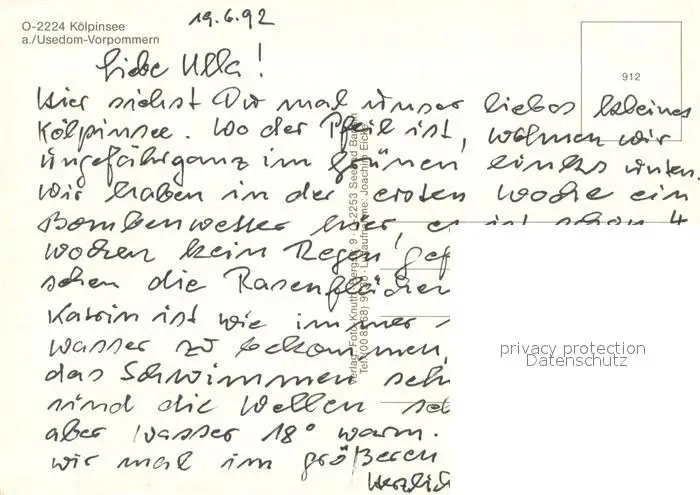 O-2224 Kölpinsee
a./Usedom-Vorpommern
19.6.92
912
Liebe Ulla!
Hier siehst Du mal unser liebes kleines
Kölpinsee. Wo der Pfeil ist, wohnen wir
ungefähr ganz im Grünen, links unten.
Wir haben in der ersten Woche ein
Bombenwetter hier, es ist schon 4
Wochen kein Regen!
schen die Rasenflächen
Katrin ist wie immer
Wasser zu bekommen,
das Schwimmen
sind die Wellen
aber Wasser 18° warm.
wir mal im größeren
Herzlich
privacy protection
Datenschutz